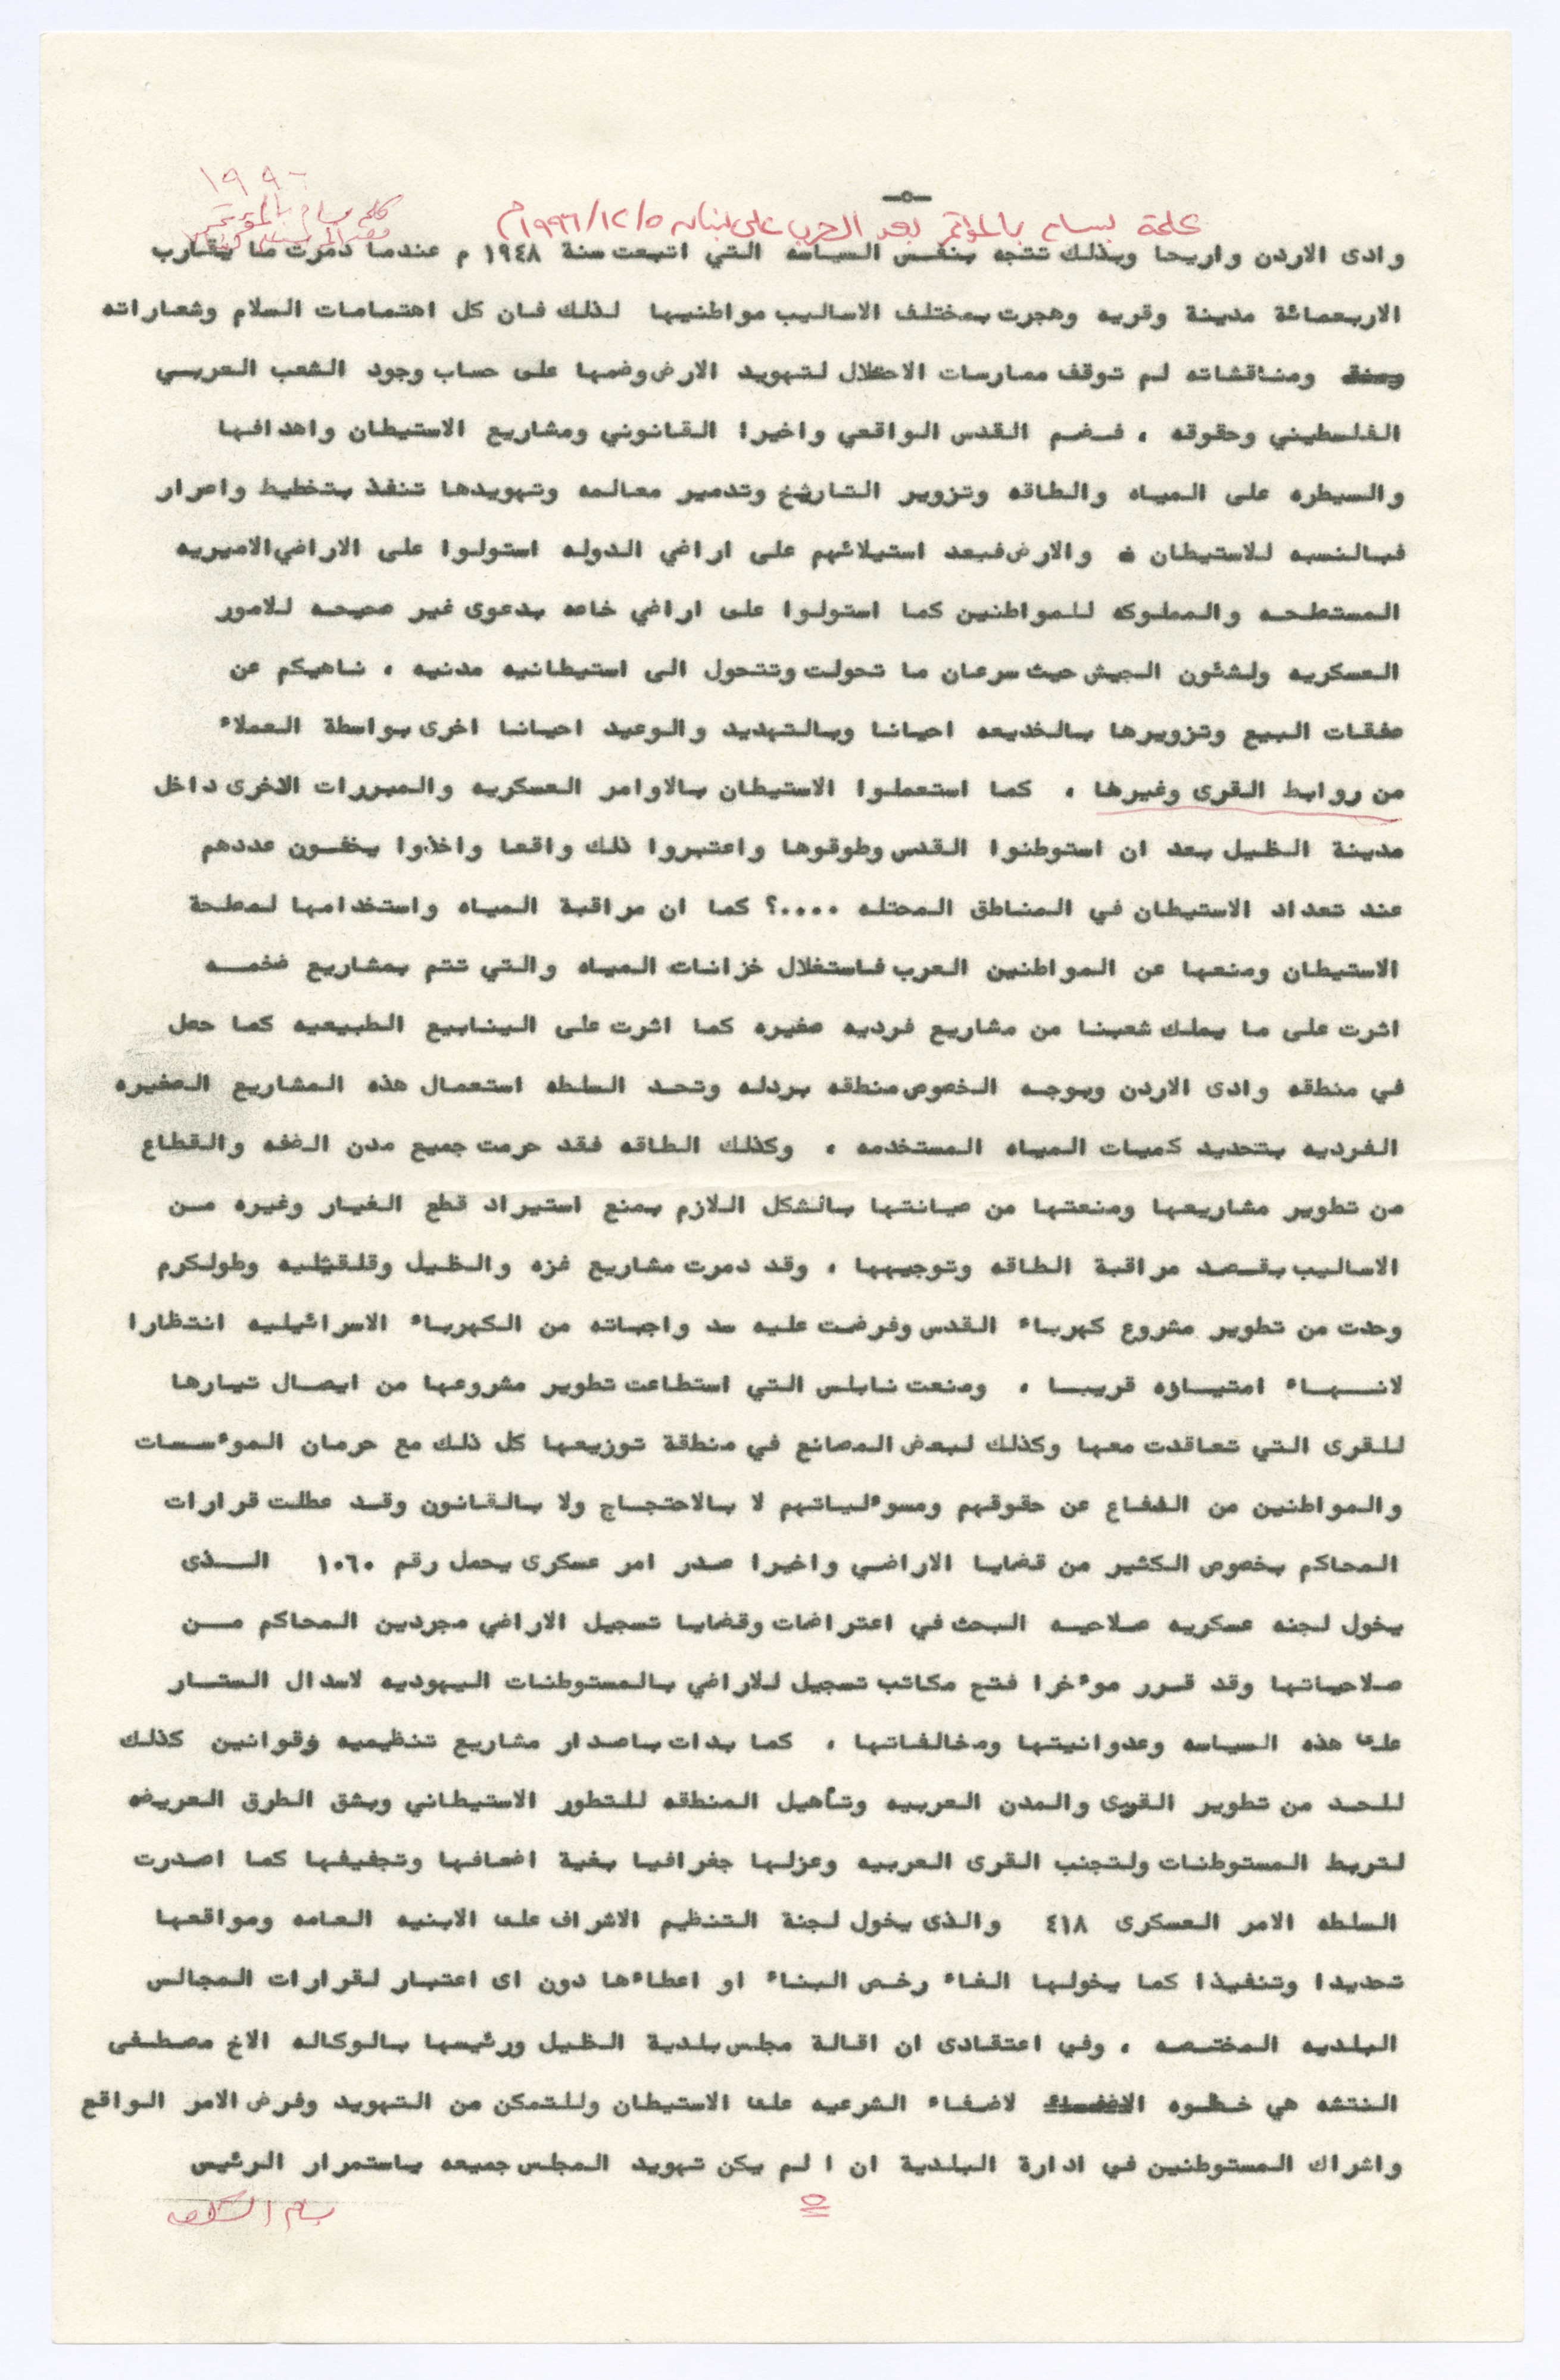 ١٩٩٦
-٥-
كلمة بسام بالمؤتمر
كلمة بسام بالمؤتمر بعد الحرب على لبنان ١٩٩٦/١٢/٥م
وادى الاردن واريحا وبذلك تتجه بنفس السياسه التي اتبعت سنة ١٩٤٨ م عندما دمرت ما يقارب
الاربعمائة مدينة وقريه وهجرت بمختلف الاساليب مواطنيها لذلك فان كل اهتمامات السلام وشعاراته
ومناقشاته لم توقف ممارسات الاحتلال لتهويد الارض وضمها على حساب وجود الشعب العربي
الفلسطيني وحقوقه ، فضم القدس الواقعي واخيرا القانوني ومشاريع الاستيطان واهدافها
والسيطره على المياه والطاقه وتزوير التاريخ وتدمير معالمه وتهويدها تنفذ بتخطيط واصرار
فبالنسبه للاستيطان والارض فبعد استيلائهم على اراضي الدوله استولوا على الاراضي الاميريه
المستصلحه والمملوكه للمواطنين كما استولوا على اراضي خاصه بدعوى غير صحيحه للامور
العسكريه ولشئون الجيش حيث سرعان ما تحولت وتتحول الى استيطانيه مدنيه ، ناهيكم عن
صفقات البيع وتزويرها بالخديعه احيانا وبالتهديد والوعيد احيانا اخرى بواسطة العملاء
من روابط القرى وغيرها ، كما استعملوا الاستيطان بالاوامر العسكريه والمبررات الاخرى داخل
مدينة الخليل بعد ان استوطنوا القدس وطوقوها واعتبروا ذلك واقعا واخذوا يخفون عددهم
عند تعداد الاستيطان في المناطق المحتله ....؟ كما ان مراقبة المياه واستخدامها لمصلحة
الاستيطان ومنعها عن المواطنين العرب فاستغلال خزانات المياه والتي تتم بمشاريع ضخمه
اثرت على ما يملك شعبنا من مشاريع فرديه صغيره كما اثرت على الينابيع الطبيعيه كما حصل
في منطقه وادى الاردن وبوجه الخصوص منطقه بردله وتحد السلطه استعمال هذه المشاريع الصغيره
الفرديه بتحديد كميات المياه المستخدمه ، وكذلك الطاقه فقد حرمت جميع مدن الضفه والقطاع
من تطوير مشاريعها ومنعتها من صيانتها بالشكل اللازم بمنع استيراد قطع الغيار وغيره من
الاساليب بقصد مراقبة الطاقه وتوجيهها ، وقد دمرت مشاريع غزه والخليل وقلقيليه وطولكرم
وحدت من تطوير مشروع كهرباء القدس وفرضت عليه سد واجباته من الكهرباء الاسرائيليه انتظارا
لانهاء امتيازه قريبا ، ومنعت نابلس التي استطاعت تطوير مشروعها من ايصال تيارها
للقرى التي تعاقدت معها وكذلك لبعض المصانع في منطقة توزيعها كل ذلك مع حرمان الموءسسات
والمواطنين من الدفاع عن حقوقهم ومسوءلياتهم لا بالاحتجاج ولا بالقانون وقد عطلت قرارات
المحاكم بخصوص الكثير من قضايا الاراضي واخيرا صدر امر عسكرى يحمل رقم ١٠٦٠ الذى
يخول لجنه عسكريه صلاحيه البحث في اعتراضات وقضايا تسجيل الاراضي مجردين المحاكم من
صلاحياتها وقد قرر موءخرا فتح مكاتب تسجيل للاراضي بالمستوطنات اليهوديه لاسدال الستار
على هذه السياسه وعدوانيتها ومخالفاتها ، كما بدات باصدار مشاريع تنظيميه وقوانين كذلك
للحد من تطوير القرى والمدن العربيه وتأهيل المنطقه للتطور الاستيطاني وبشق الطرق العريضه
لتربط المستوطنات ولتجنب القرى العربيه وعزلها جغرافيا بغية اضعافها وتجفيفها كما اصدرت
السلطه الامر العسكرى ٤١٨ والذى يخول لجنة التنظيم الاشراف على الابنيه العامه ومواقعها
تحديدا وتنفيذا كما يخولها الغاء رخص البناء او اعطاءها دون اى اعتبار لقرارات المجالس
البلديه المختصه ، وفي اعتقادى ان اقالة مجلس بلدية الخليل ورئيسها بالوكاله الاخ مصطفى
النتشه هي خطوه لاضفاء الشرعيه على الاستيطان وللتمكن من التهويد وفرض الامر الواقع
واشراك المستوطنين في ادارة البلدية ان ا لم يكن تهويد المجلس جميعه باستمرار الرئيس
٥
بسام الشكعه